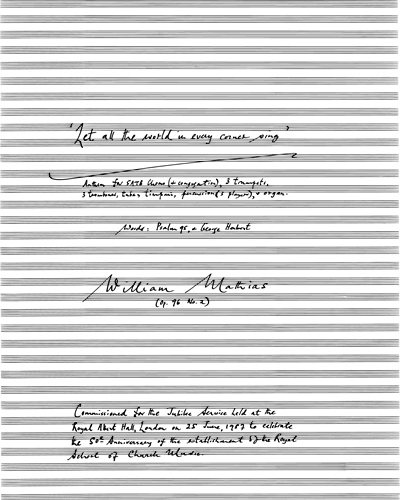 'Let all the world in every corner sing'
Anthem for SATB Chorus (+ congregation), 3 trumpets,
3 trombones, tuba, timpani, percussion (3 players), + organ.
Words: Psalm 95, + George Herbert
William Mathias
(Op. 96 No. 2)
Commissioned for the Jubilee Service held at the
Royal Albert Hall, London on 25 June, 1987 to celebrate
the 50th Anniversary of the establishment of the Royal
School of Church Music.